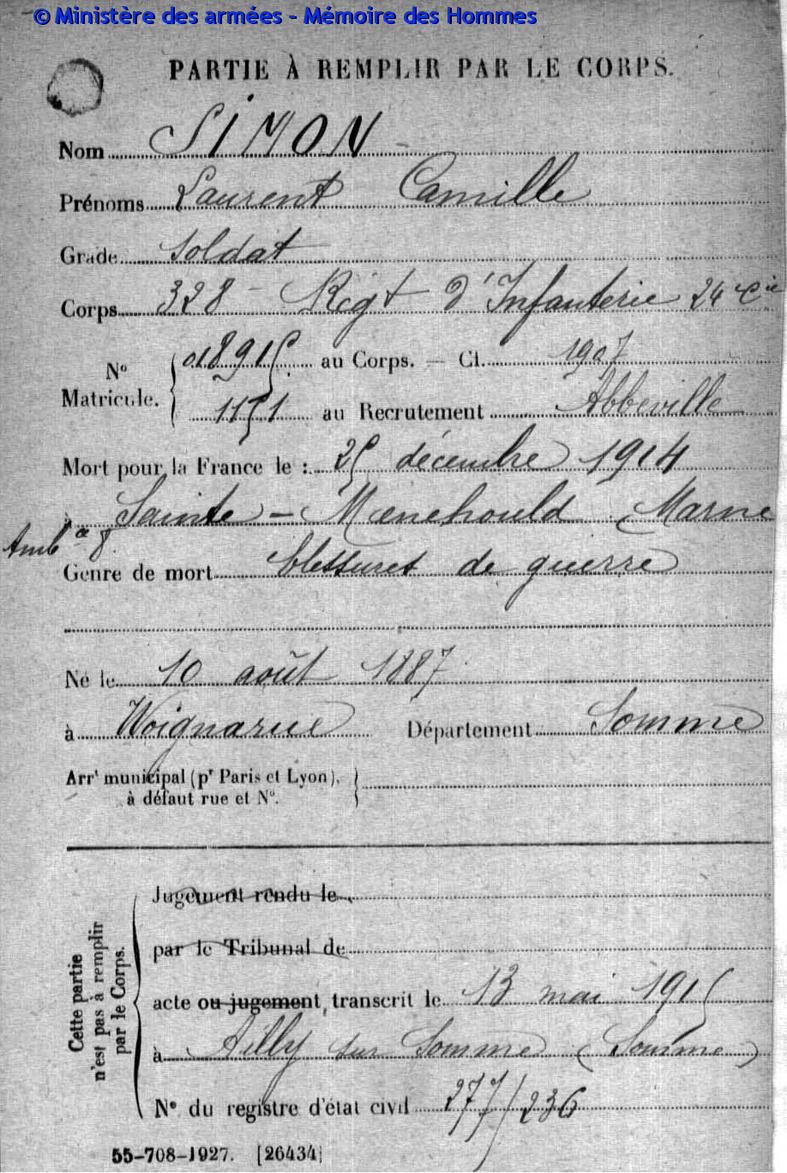 © Ministère des armées - Mémoire des Hommes
PARTIE À REMPLIR PAR LE CORPS.
Nom SIMON
Prénoms Laurent Camille
Grade Soldat
Corps 328 Régt d'Infanterie 24 Cie
N° Matricule. 018915 au Corps. — Cl. 1907
1151 au Recrutement Abbeville
Mort pour la France le : 25 décembre 1914
à Sainte-Menehould (Marne
Ambce 8
Genre de mort blessures de guerre
Né le 10 août 1887
à Woignarue Département Somme
Arrt municipal (pr Paris et Lyon),
à défaut rue et N°.
Cette partie
n'est pas à remplir
par le Corps.
Jugement rendu le
par le Tribunal de
acte ou jugement, transcrit le 13 mai 1915
à Ailly sur Somme (Somme)
N° du registre d'état civil 277/236
55-708-1927. [26434]